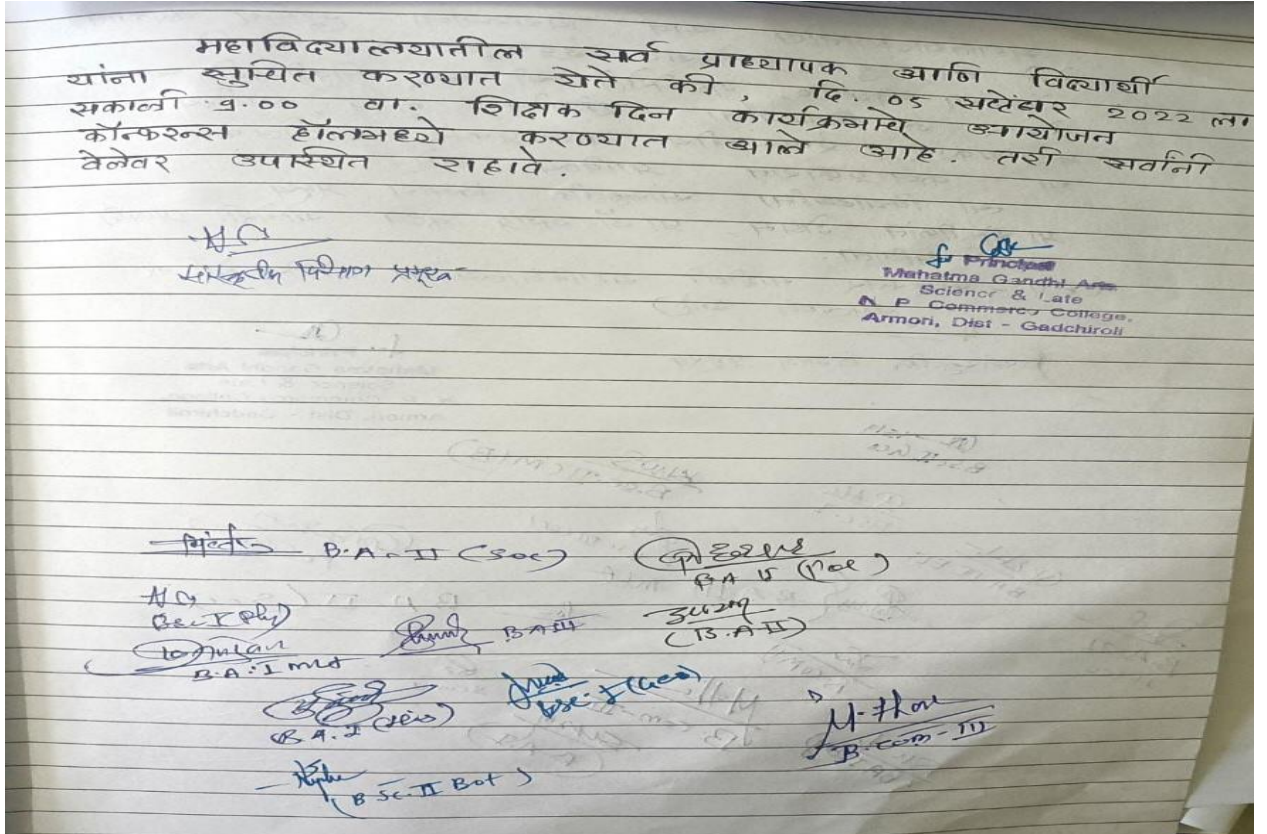 महाविद्यालयातील सर्व प्राध्यापक आणि विद्यार्थी
यांना सुचित करण्यात येते की, दि. 05 सप्टेंबर 2022 ला
सकाळी 9.00 वा. शिक्षक दिन कार्यक्रमाचे आयोजन
कॉन्फरन्स हॉलमध्ये करण्यात आले आहे. तरी सर्वांनी
वेळेवर उपास्थित राहावे.
सांस्कृतीक विभाग प्रमुख
Principal
Mahatma Gandhi Arts
Science & Late
N P Commerce College,
Armori, Dist - Gadchiroli
B.A-II (Soc)
(Bsc-I Phy)
B A III
(B.A II)
B.A.I
Bsc-I (Geo)
B.com-III
(B.Sc.II Bot)